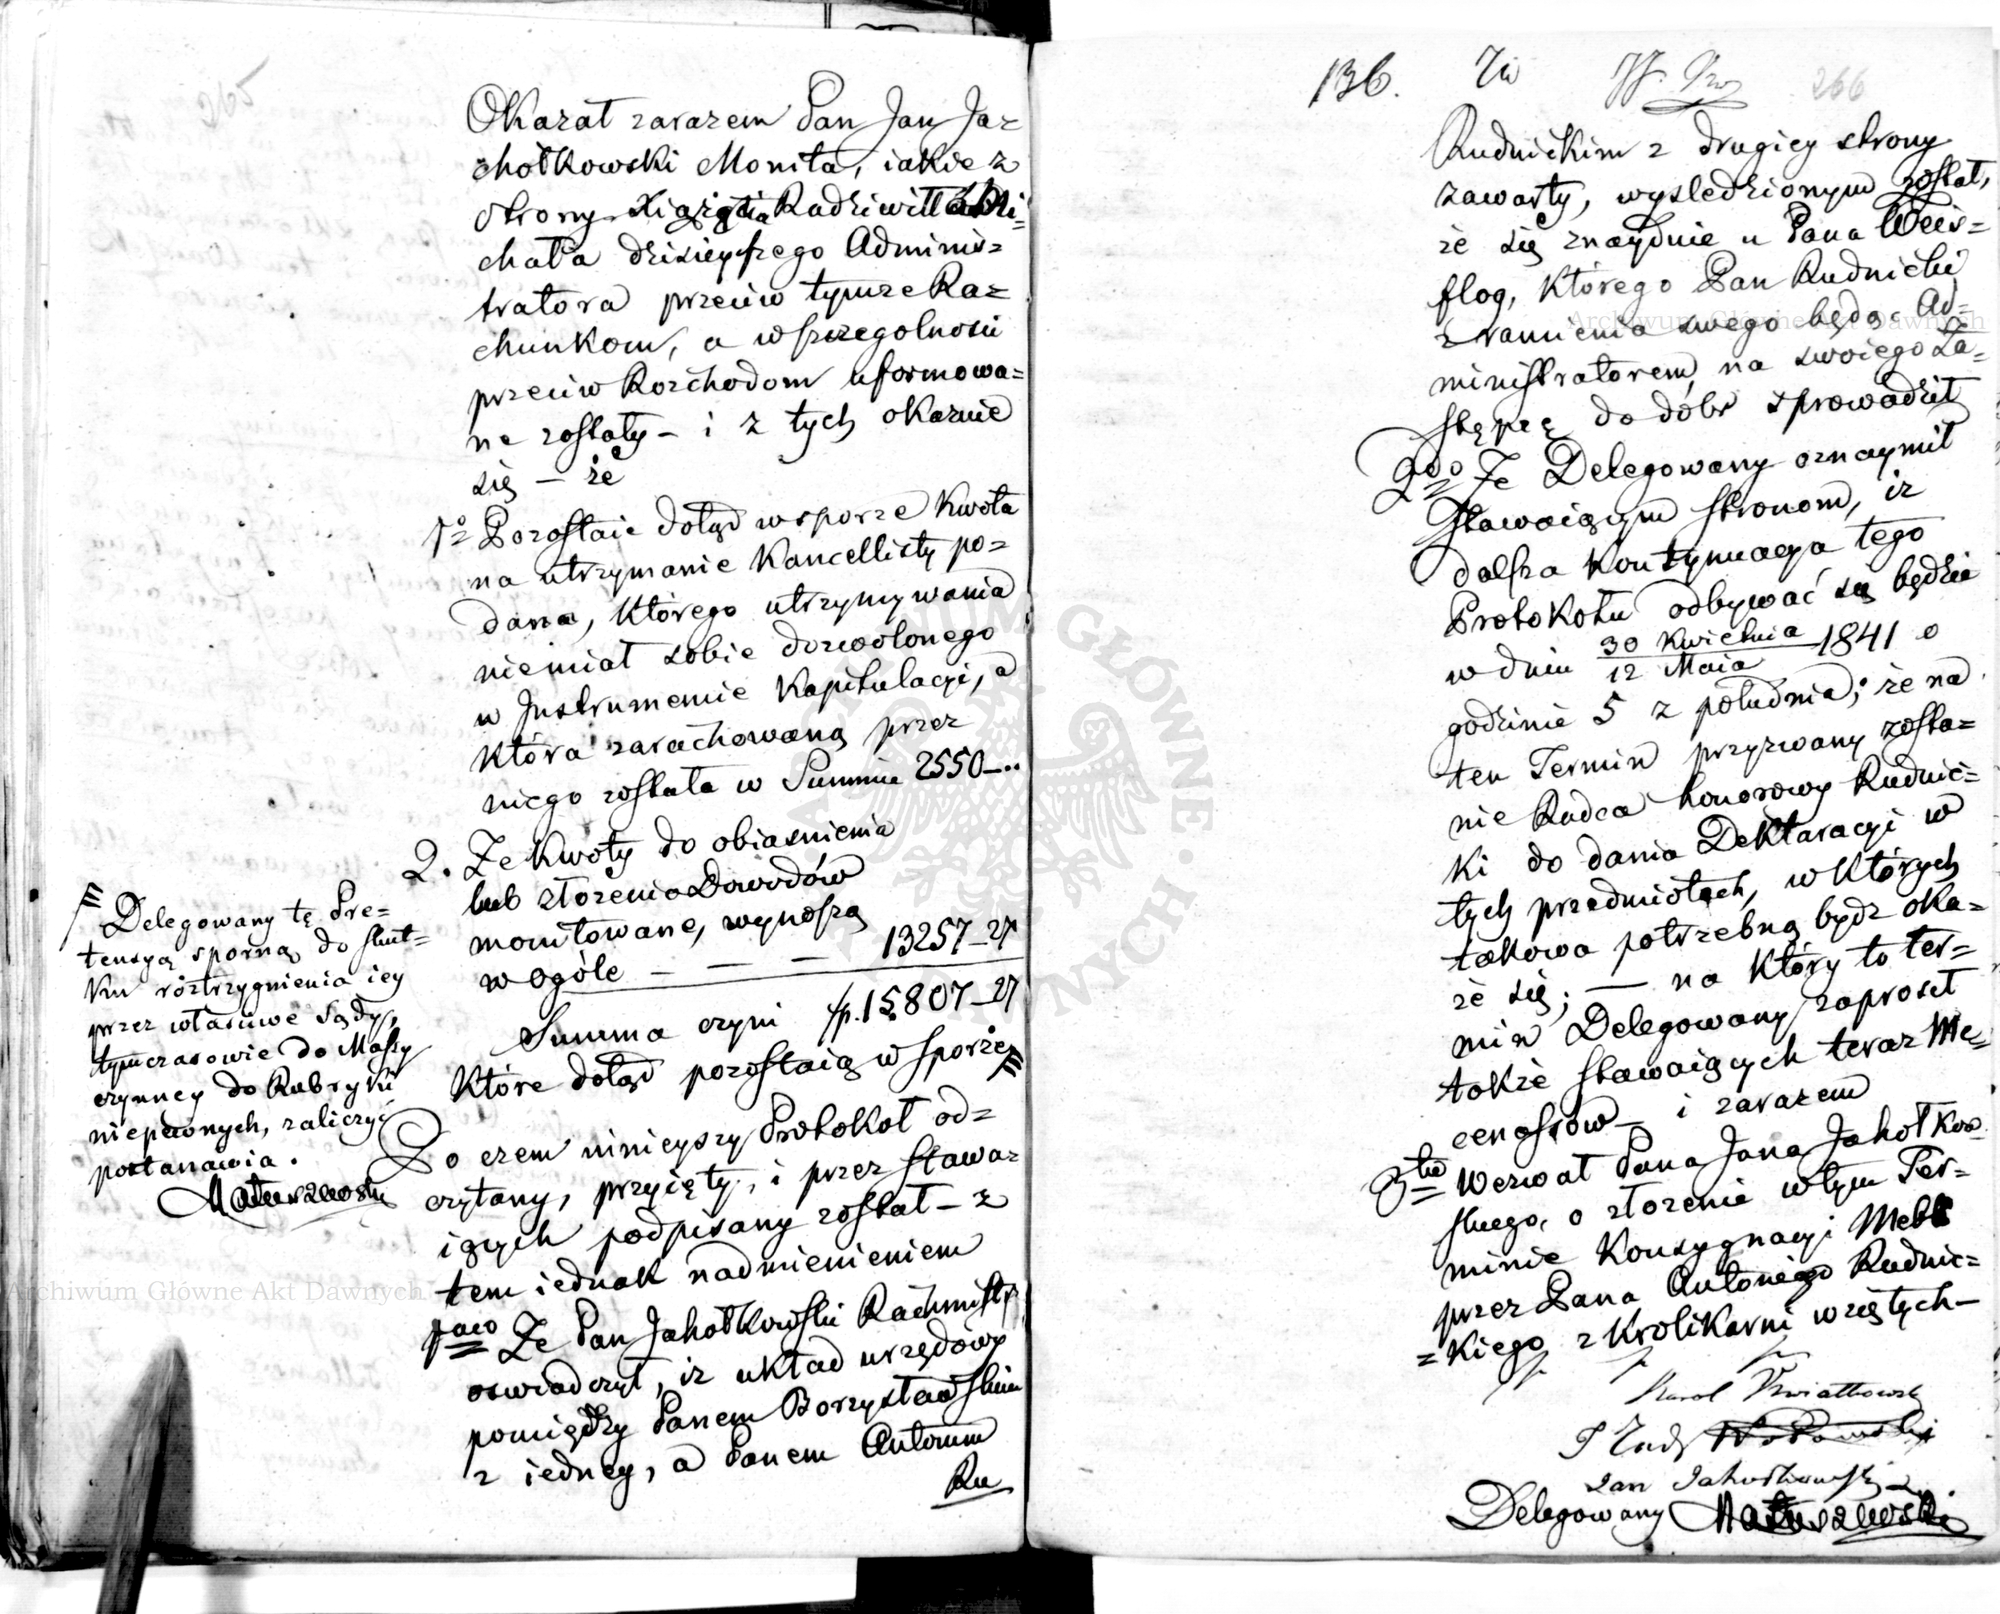 Okazał zarazem Pan Jan Ja=
chołkowski Monita, iakie z
strony Xiążęcia Radziwiłła Mi=
chała dzisieyszego Adminis=
tratora przeciw tymże Ra=
chunkom, a w szczegolnosci
przeciw Rozchodom uformowa=
ne zostały – i z tych okazuie
się – że
1º Pozostaie dotąd w sporze kwota
na utrzymanie Kancellisty po=
dana, którego utrzymywania
niemiał sobie dozwolonego
w Instrumencie Kapitulacyi, a
która zarachowaną przez
niego została w Summie 2550 – ..
2. Że kwoty do obiasnienia
lub złożenia Dowodów
monitowane, wynoszą
w ogóle – – – 13257 – 27
Summa czyni fp. 15807 – 27
które dotąd pozostaią w sporze
Delegowany tę Pre=
tensyą sporną do skut=
ku róztrzygnienia iey
przez własciwe Sądy,
tymczasowie do Massy
czynney do Rubryki
niepewnych, zaliczyć
postanawia.
Matuszewski
Po czem ninieyszy Protokół od=
czytany, przyięty, i przez stawa=
iących podpisany został – z
tem iednak nadmienieniem
1mo Że Pan Jahołkowski Rachmistrz
oswiadczył, iz układ urzędowy
pomiędzy Panem Borzysławskim
z iedney, a Panem Antonim
Ru
136. 266
Rudnickim z drugiey strony
zawarty, wysledzionym został,
że się znayduie u Pana Weis=
flog, którego Pan Rudnicki
z ramienia swego będąc Ad=
ministratorem, na swoiego Za=
stępcę do dóbr sprowadził
2do Że Delegowany oznaymił
stawaiącym stronom, iż
dalsza kontynuacya tego
Protokołu odbywać się będzie
w dniu 30 Kwietnia / 12 Maia 1841 o
godzinie 5 z południa; że na
ten Termin przyzwany zosta=
nie Radca honorowy Rudnic=
ki do dania Deklaracyi w
tych przedmiotach, w których
takowa potrzebną bydz oka=
że się; – na który to ter=
min Delegowany zaprosił
także stawaiących teraz Me=
cenasów – i zarazem
3tio Wezwał Pana Jana Jahołkow
skiego, o złożenie w tym Ter=
minie Konsygnacyi Mebli
przez Pana Antoniego Rudnic=
=kiego z Krolikarni wziętych –
Karol Kwiatkowski
Jan Jahołkowski
Delegowany Matuszewski
Archiwum Główne Akt Dawnych
Archiwum Główne Akt Dawnych
ARCHIWUM GŁÓWNE AKT DAWNYCH